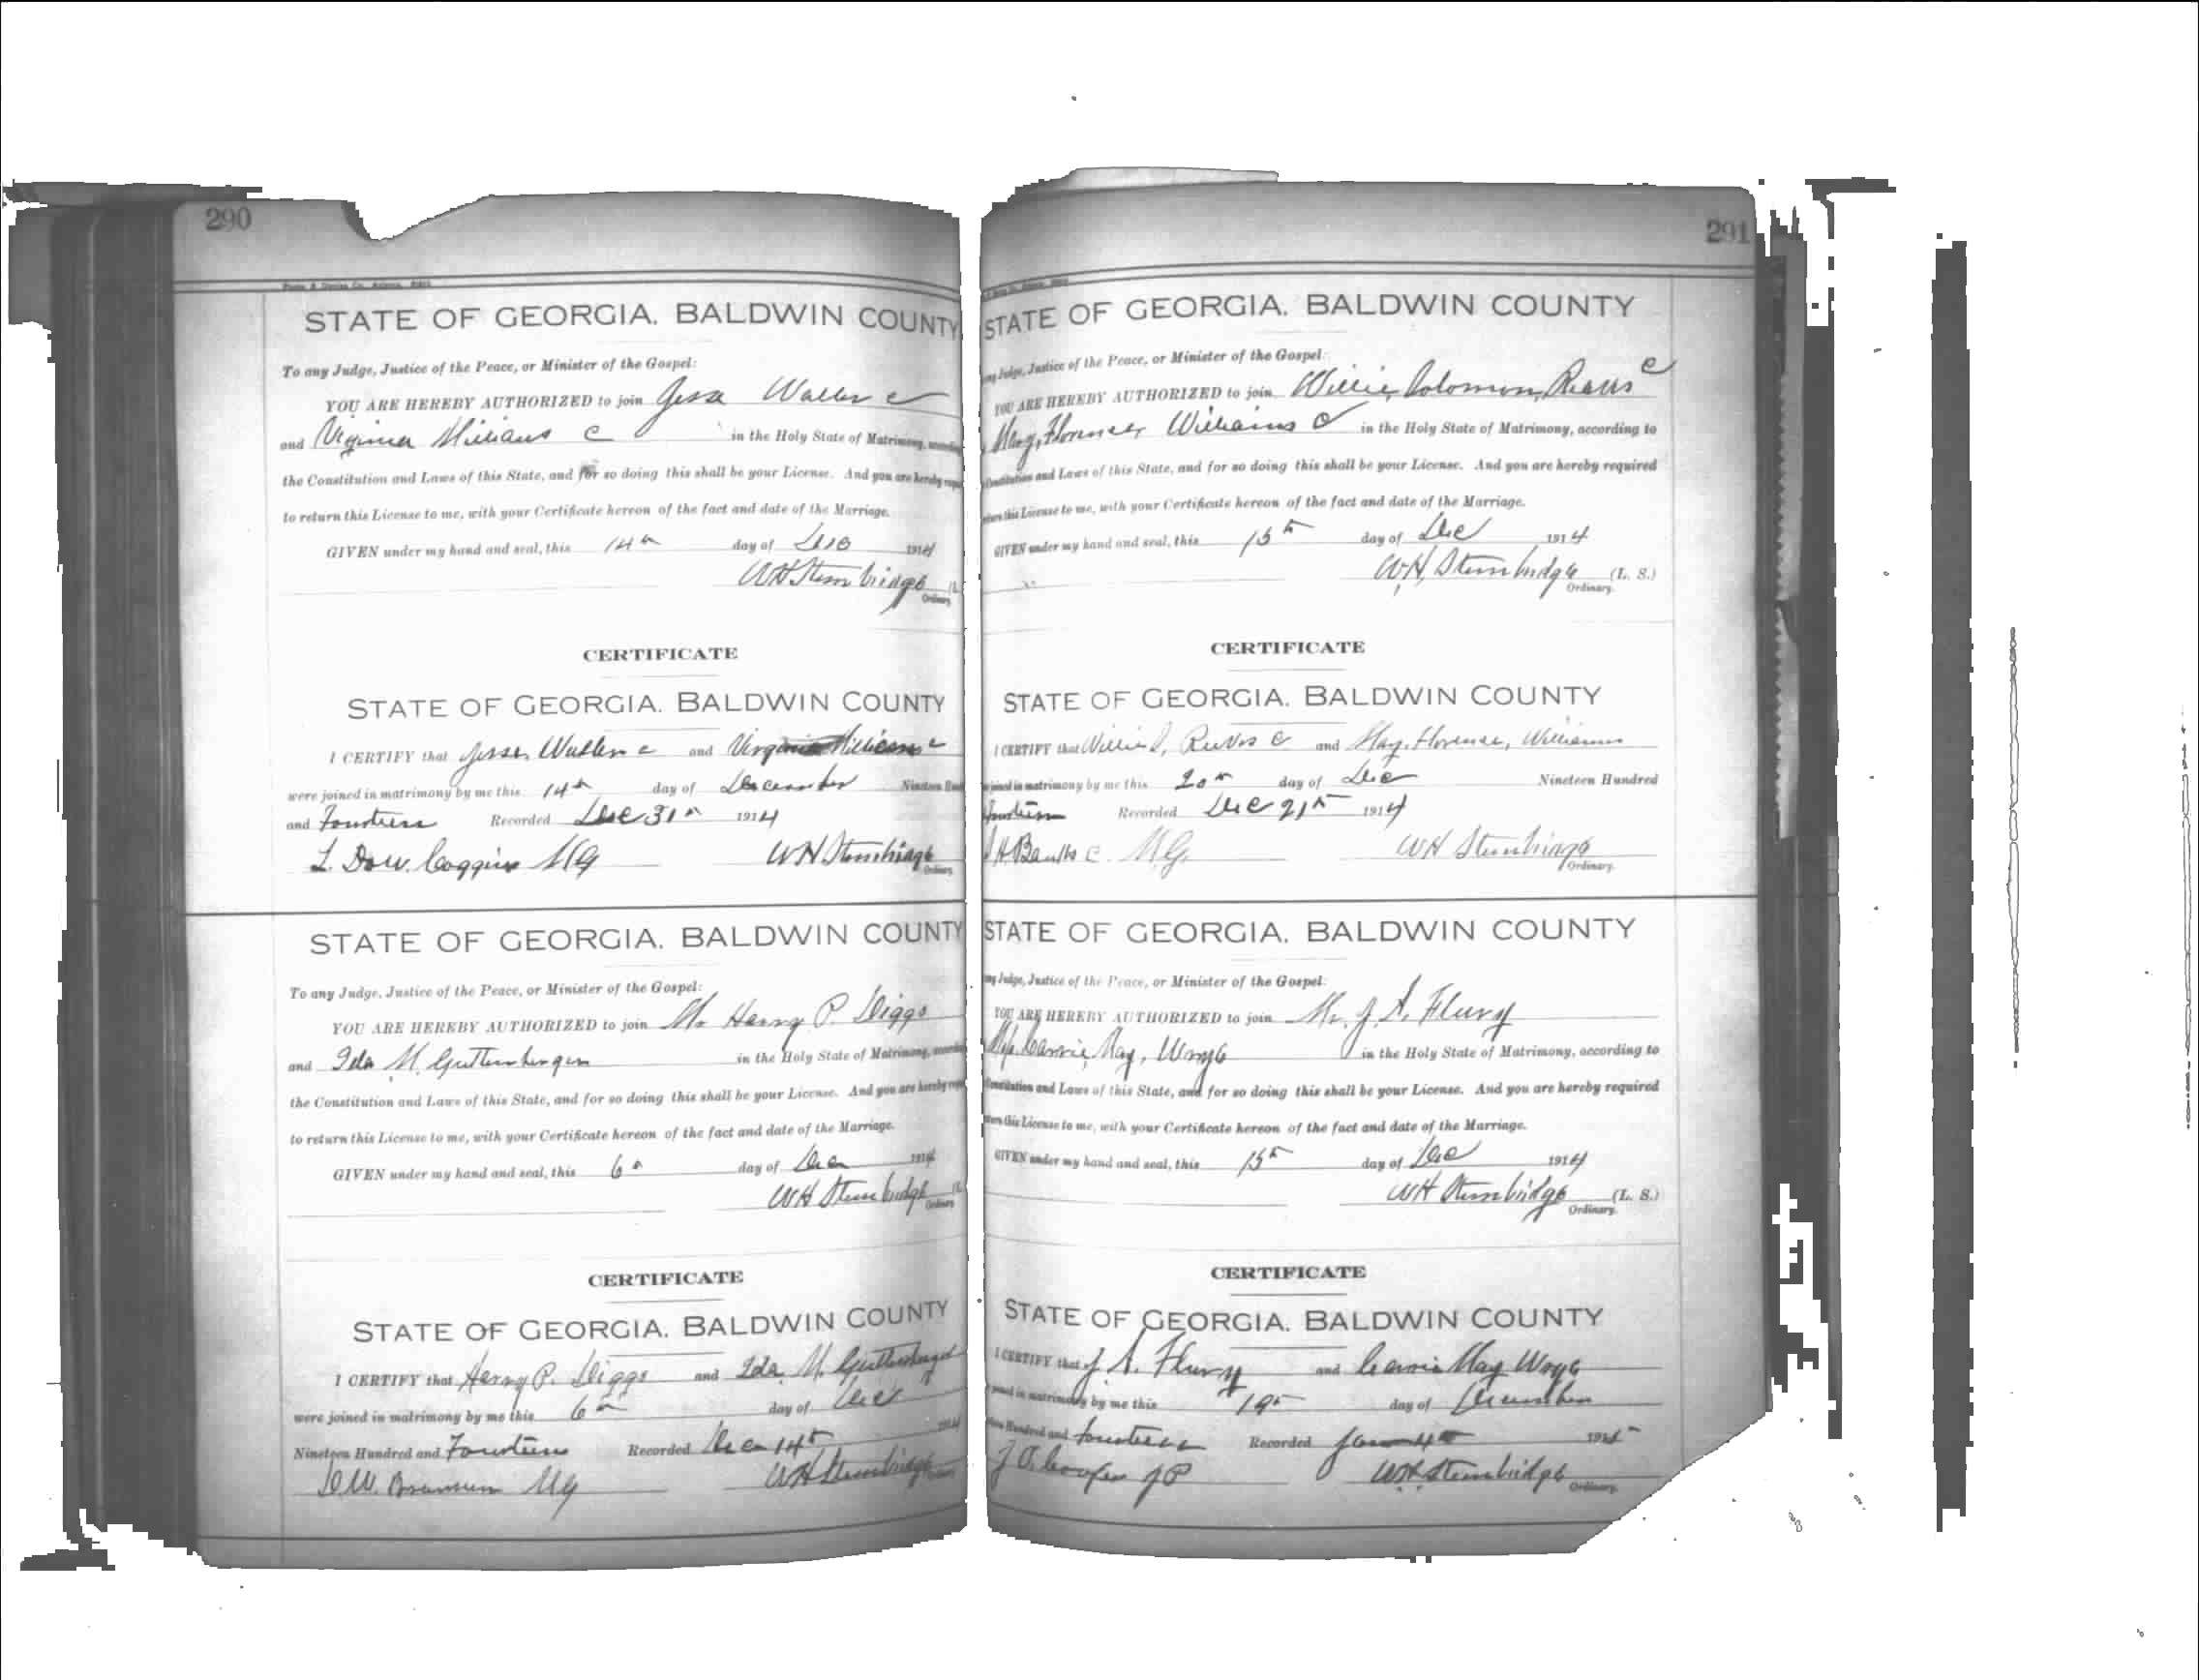 290
STATE OF GEORGIA. BALDWIN COUNTY
To any Judge, Justice of the Peace, or Minister of the Gospel:
YOU ARE HEREBY AUTHORIZED to join Jesse Waller c
and Virginia c in the Holy State of Matrimony,
the Constitution and Laws of this State, and for so doing this shall be your License. And you are hereby
to return this License to me, with your Certificate hereon of the fact and date of the Marriage.
GIVEN under my hand and seal, this 14th day of Dec 1914
WH Stembridge (L.
Ordinary
CERTIFICATE
STATE OF GEORGIA. BALDWIN COUNTY
I CERTIFY that Jesse Waller c and Virginia c
were joined in matrimony by me this 14th day of December Nineteen
and Fourteen Recorded Dec 31st 1914
L. Dow. Coggins MG WH Stembridge
Ordinary
STATE OF GEORGIA. BALDWIN COUNTY
To any Judge, Justice of the Peace, or Minister of the Gospel:
YOU ARE HEREBY AUTHORIZED to join Mr Henry P. Diggs
and Ida M. Guttenberger in the Holy State of Matrimony,
the Constitution and Laws of this State, and for so doing this shall be your License. And you are hereby
to return this License to me, with your Certificate hereon of the fact and date of the Marriage.
GIVEN under my hand and seal, this 6th day of Dec 1914
WH Stembridge (L.
Ordinary
CERTIFICATE
STATE OF GEORGIA. BALDWIN COUNTY
I CERTIFY that Henry P. Diggs and Ida M. Guttenberger
were joined in matrimony by me this 6th day of Dec
Nineteen Hundred and Fourteen Recorded Dec 14th 1914
MG WH Stembridge
291
STATE OF GEORGIA. BALDWIN COUNTY
Judge, Justice of the Peace, or Minister of the Gospel:
YOU ARE HEREBY AUTHORIZED to join Willie, Solomon, c
May, Florence, Williams c in the Holy State of Matrimony, according to
Constitution and Laws of this State, and for so doing this shall be your License. And you are hereby required
this License to me, with your Certificate hereon of the fact and date of the Marriage.
GIVEN under my hand and seal, this 15th day of Dec 1914
W.H. Stembridge (L. S.)
Ordinary.
CERTIFICATE
STATE OF GEORGIA. BALDWIN COUNTY
I CERTIFY that Willie S, c and May, Florence, Williams
joined in matrimony by me this 20th day of Dec Nineteen Hundred
Fourteen Recorded Dec 21st 1914
Banks c. M.G. WH Stembridge
Ordinary.
STATE OF GEORGIA. BALDWIN COUNTY
Judge, Justice of the Peace, or Minister of the Gospel:
YOU ARE HEREBY AUTHORIZED to join Mr. J. A. Flury
Carrie, May, in the Holy State of Matrimony, according to
Constitution and Laws of this State, and for so doing this shall be your License. And you are hereby required
this License to me, with your Certificate hereon of the fact and date of the Marriage.
GIVEN under my hand and seal, this 15th day of Dec 1914
WH Stembridge (L. S.)
Ordinary.
CERTIFICATE
STATE OF GEORGIA. BALDWIN COUNTY
I CERTIFY that J. A. Flury and Carrie May
joined in matrimony by me this 19th day of December
Hundred and fourteen Recorded Jan 4th 1915
J O. Cooper JP WH Stembridge
Ordinary.